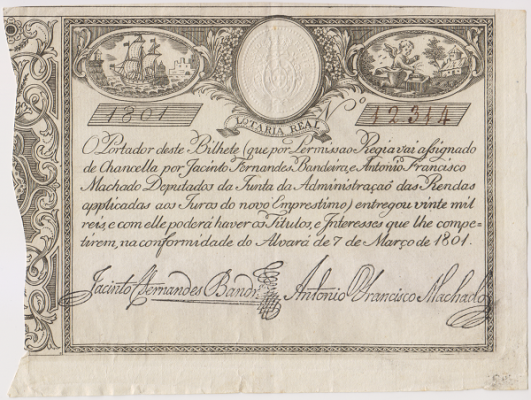 1801
LOTARIA REAL
No
12314
O Portador deste Bilhete (que por Permissaõ Regia vai assignado
de Chancella por Jacinto Fernandes Bandeira, e Antonio Francisco
Machado Deputados da Junta da Administraçaõ das Rendas
applicadas aos Juros do novo Emprestimo) entregou vinte mil
reis, e com elle poderá haver os Titulos, e Interesses que lhe compe-
tirem, na conformidade do Alvará de 7 de Março de 1801.
Jacinto Fernandes Bandr.ª
Antonio Francisco Machado